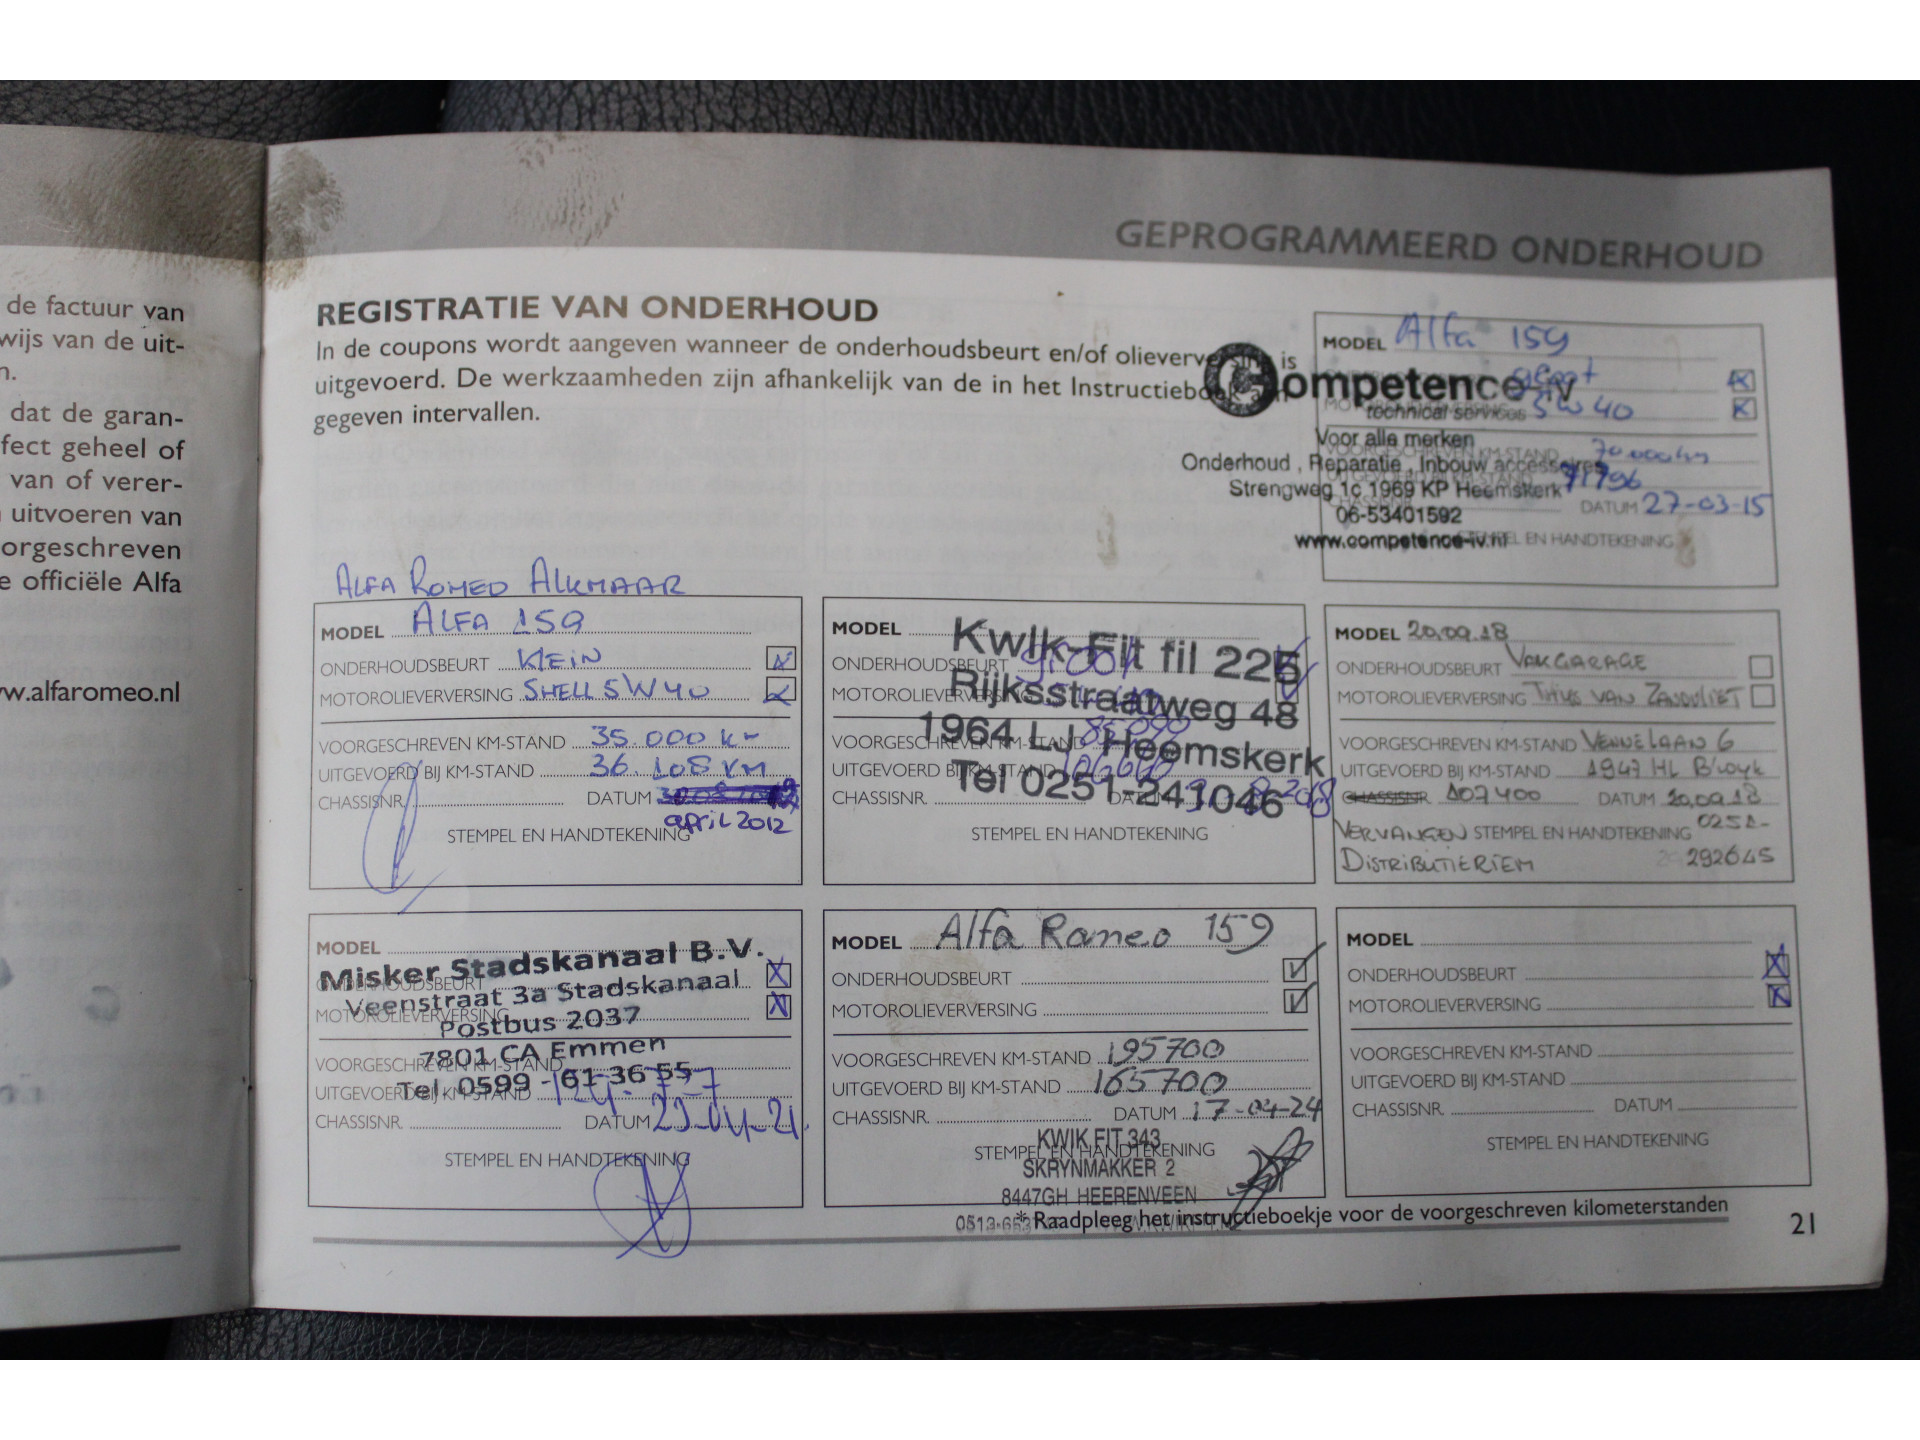 de factuur van
wijs van de uit-
n.
dat de garan-
fect geheel of
van of verer-
uitvoeren van
orgeschreven
e officiële Alfa
w.alfaromeo.nl
GEPROGRAMMEERD ONDERHOUD
REGISTRATIE VAN ONDERHOUD
In de coupons wordt aangeven wanneer de onderhoudsbeurt en/of olieverversing is
uitgevoerd. De werkzaamheden zijn afhankelijk van de in het Instructieboek aan
gegeven intervallen.
MODEL Alfa 159
groot
5W40
Competence-iv
technical services
Voor alle merken
Onderhoud, Reparatie, Inbouw accessoires
Strengweg 1c 1969 KP Heemskerk
06-53401592
www.competence-iv.nl
VOORGESCHREVEN KM-STAND 70.000km
71796
DATUM 27-03-15
STEMPEL EN HANDTEKENING
ALFA ROMEO ALKMAAR
MODEL ALFA 159
ONDERHOUDSBEURT KLEIN
MOTOROLIEVERVERSING SHELL 5W40
VOORGESCHREVEN KM-STAND 35.000 km
UITGEVOERD BIJ KM-STAND 36.108 KM
CHASSISNR. DATUM
april 2012
STEMPEL EN HANDTEKENING
MODEL
ONDERHOUDSBEURT
MOTOROLIEVERVERSING
VOORGESCHREVEN KM-STAND
UITGEVOERD BIJ KM-STAND
CHASSISNR. DATUM
STEMPEL EN HANDTEKENING
Kwik-Fit fil 225
Rijksstraatweg 48
1964 LJ Heemskerk
Tel 0251-241046
MODEL 20.09.18
ONDERHOUDSBEURT VAKGARAGE
MOTOROLIEVERVERSING TITUS VAN ZANDVLIET
VOORGESCHREVEN KM-STAND VENNELAAN 6
UITGEVOERD BIJ KM-STAND 1947 HL B'wyk
CHASSISNR 107400 DATUM 20.09.18
VERVANGEN STEMPEL EN HANDTEKENING 0251-
DISTRIBUTIERIEM 292645
MODEL
ONDERHOUDSBEURT
MOTOROLIEVERVERSING
VOORGESCHREVEN KM-STAND
UITGEVOERD BIJ KM-STAND
CHASSISNR. DATUM 23-04-21
STEMPEL EN HANDTEKENING
Misker Stadskanaal B.V.
Veenstraat 3a Stadskanaal
Postbus 2037
7801 CA Emmen
Tel. 0599 - 61 36 55
MODEL Alfa Romeo 159
ONDERHOUDSBEURT
MOTOROLIEVERVERSING
VOORGESCHREVEN KM-STAND 195700
UITGEVOERD BIJ KM-STAND 165700
CHASSISNR. DATUM 17-04-24
STEMPEL EN HANDTEKENING
KWIK FIT 343
SKRYNMAKKER 2
8447GH HEERENVEEN
MODEL
ONDERHOUDSBEURT
MOTOROLIEVERVERSING
VOORGESCHREVEN KM-STAND
UITGEVOERD BIJ KM-STAND
CHASSISNR. DATUM
STEMPEL EN HANDTEKENING
* Raadpleeg het instructieboekje voor de voorgeschreven kilometerstanden
21